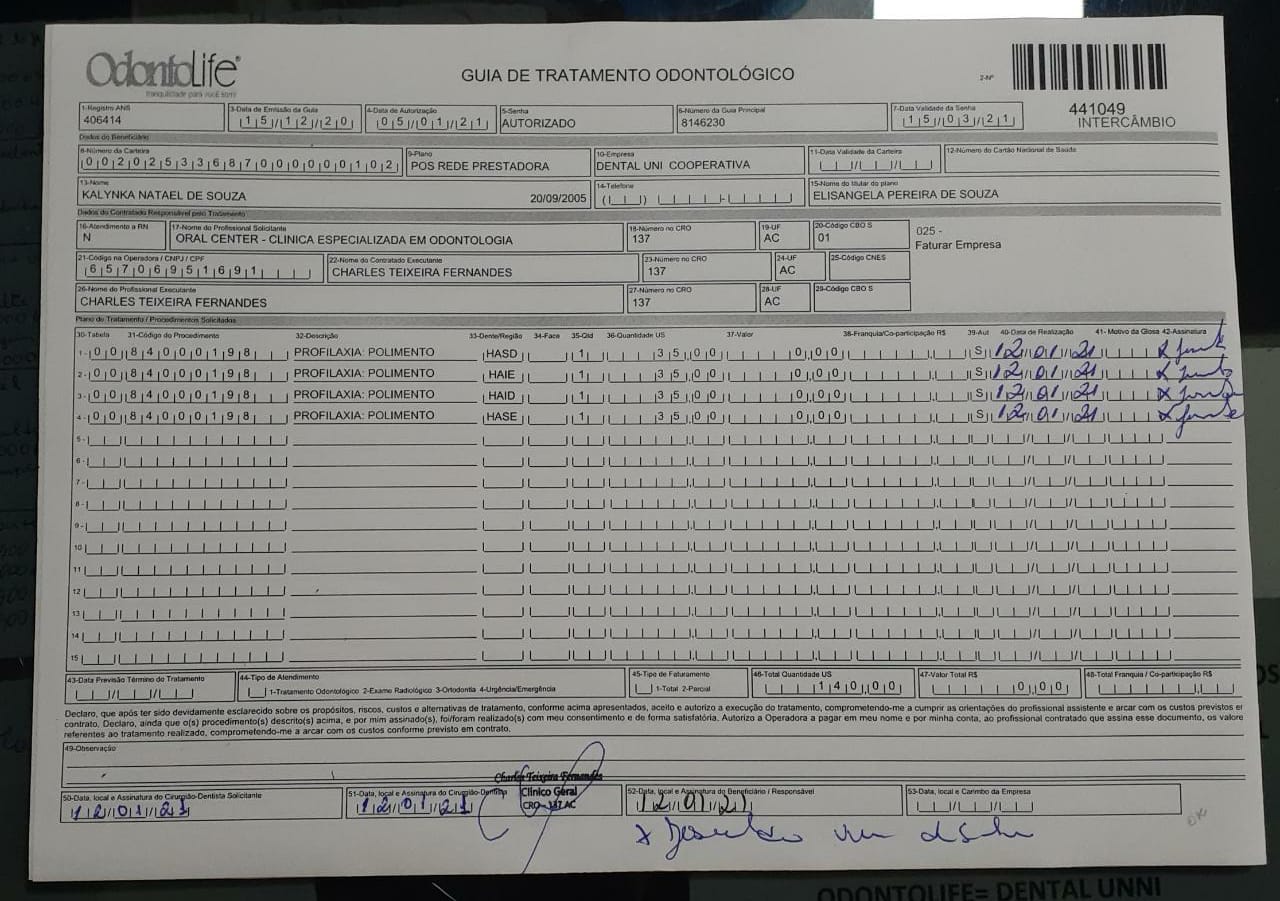 OdontoLife
tranquilidade para você sorrir
GUIA DE TRATAMENTO ODONTOLÓGICO
2-Nº
441049
INTERCÂMBIO
1-Registro ANS 3-Data de Emissão da Guia 4-Data de Autorização 5-Senha 6-Número da Guia Principal 7-Data Validade da Senha
406414 15/12/20 05/01/21 AUTORIZADO 8146230 15/03/21
Dados do Beneficiário
8-Número da Carteira 9-Plano 10-Empresa 11-Data Validade da Carteira 12-Número do Cartão Nacional de Saúde
00202533687000000102 POS REDE PRESTADORA DENTAL UNI COOPERATIVA
13-Nome 14-Telefone 15-Nome do titular do plano
KALYNKA NATAEL DE SOUZA 20/09/2005 ELISANGELA PEREIRA DE SOUZA
Dados do Contratado Responsável pelo Tratamento
16-Atendimento a RN 17-Nome do Profissional Solicitante 18-Número no CRO 19-UF 20-Código CBO S
N ORAL CENTER - CLINICA ESPECIALIZADA EM ODONTOLOGIA 137 AC 01
025 -
Faturar Empresa
21-Código na Operadora / CNPJ / CPF 22-Nome do Contratado Executante 23-Número no CRO 24-UF 25-Código CNES
65706951691 CHARLES TEIXEIRA FERNANDES 137 AC
26-Nome do Profissional Executante 27-Número no CRO 28-UF 29-Código CBO S
CHARLES TEIXEIRA FERNANDES 137 AC
Plano de Tratamento / Procedimentos Solicitados
30-Tabela 31-Código do Procedimento 32-Descrição 33-Dente/Região 34-Face 35-Qtd 36-Quantidade US 37-Valor 38-Franquia/Co-participação R$ 39-Aut 40-Data de Realização 41- Motivo da Glosa 42-Assinatura
1- 00 84000198 PROFILAXIA: POLIMENTO HASD 1 35,00 0,00 S 12/01/21
2- 00 84000198 PROFILAXIA: POLIMENTO HAIE 1 35,00 0,00 S 12/01/21
3- 00 84000198 PROFILAXIA: POLIMENTO HAID 1 35,00 0,00 S 12/01/21
4- 00 84000198 PROFILAXIA: POLIMENTO HASE 1 35,00 0,00 S 12/01/21
5-
6-
7-
8-
9-
10
11
12
13
14
15
43-Data Previsão Término do Tratamento 44-Tipo de Atendimento 45-Tipo de Faturamento 46-Total Quantidade US 47-Valor Total R$ 48-Total Franquia / Co-participação R$
1-Tratamento Odontológico 2-Exame Radiológico 3-Ortodontia 4-Urgência/Emergência 1-Total 2-Parcial 140,00 0,00
Declaro, que após ter sido devidamente esclarecido sobre os propósitos, riscos, custos e alternativas de tratamento, conforme acima apresentados, aceito e autorizo a execução do tratamento, comprometendo-me a cumprir as orientações do profissional assistente e arcar com os custos previstos em
contrato. Declaro, ainda que o(s) procedimento(s) descrito(s) acima, e por mim assinado(s), foi/foram realizado(s) com meu consentimento e de forma satisfatória. Autorizo a Operadora a pagar em meu nome e por minha conta, ao profissional contratado que assina esse documento, os valores
referentes ao tratamento realizado, comprometendo-me a arcar com os custos conforme previsto em contrato.
49-Observação
Charles Teixeira Fernandes
Clínico Geral
CRO-137 AC
50-Data, local e Assinatura do Cirurgião-Dentista Solicitante 51-Data, local e Assinatura do Cirurgião-Dentista 52-Data, local e Assinatura do Beneficiário / Responsável 53-Data, local e Carimbo da Empresa
12/01/21 12/01/21 12/01/21
OK
ODONTOLIFE= DENTAL UNNI